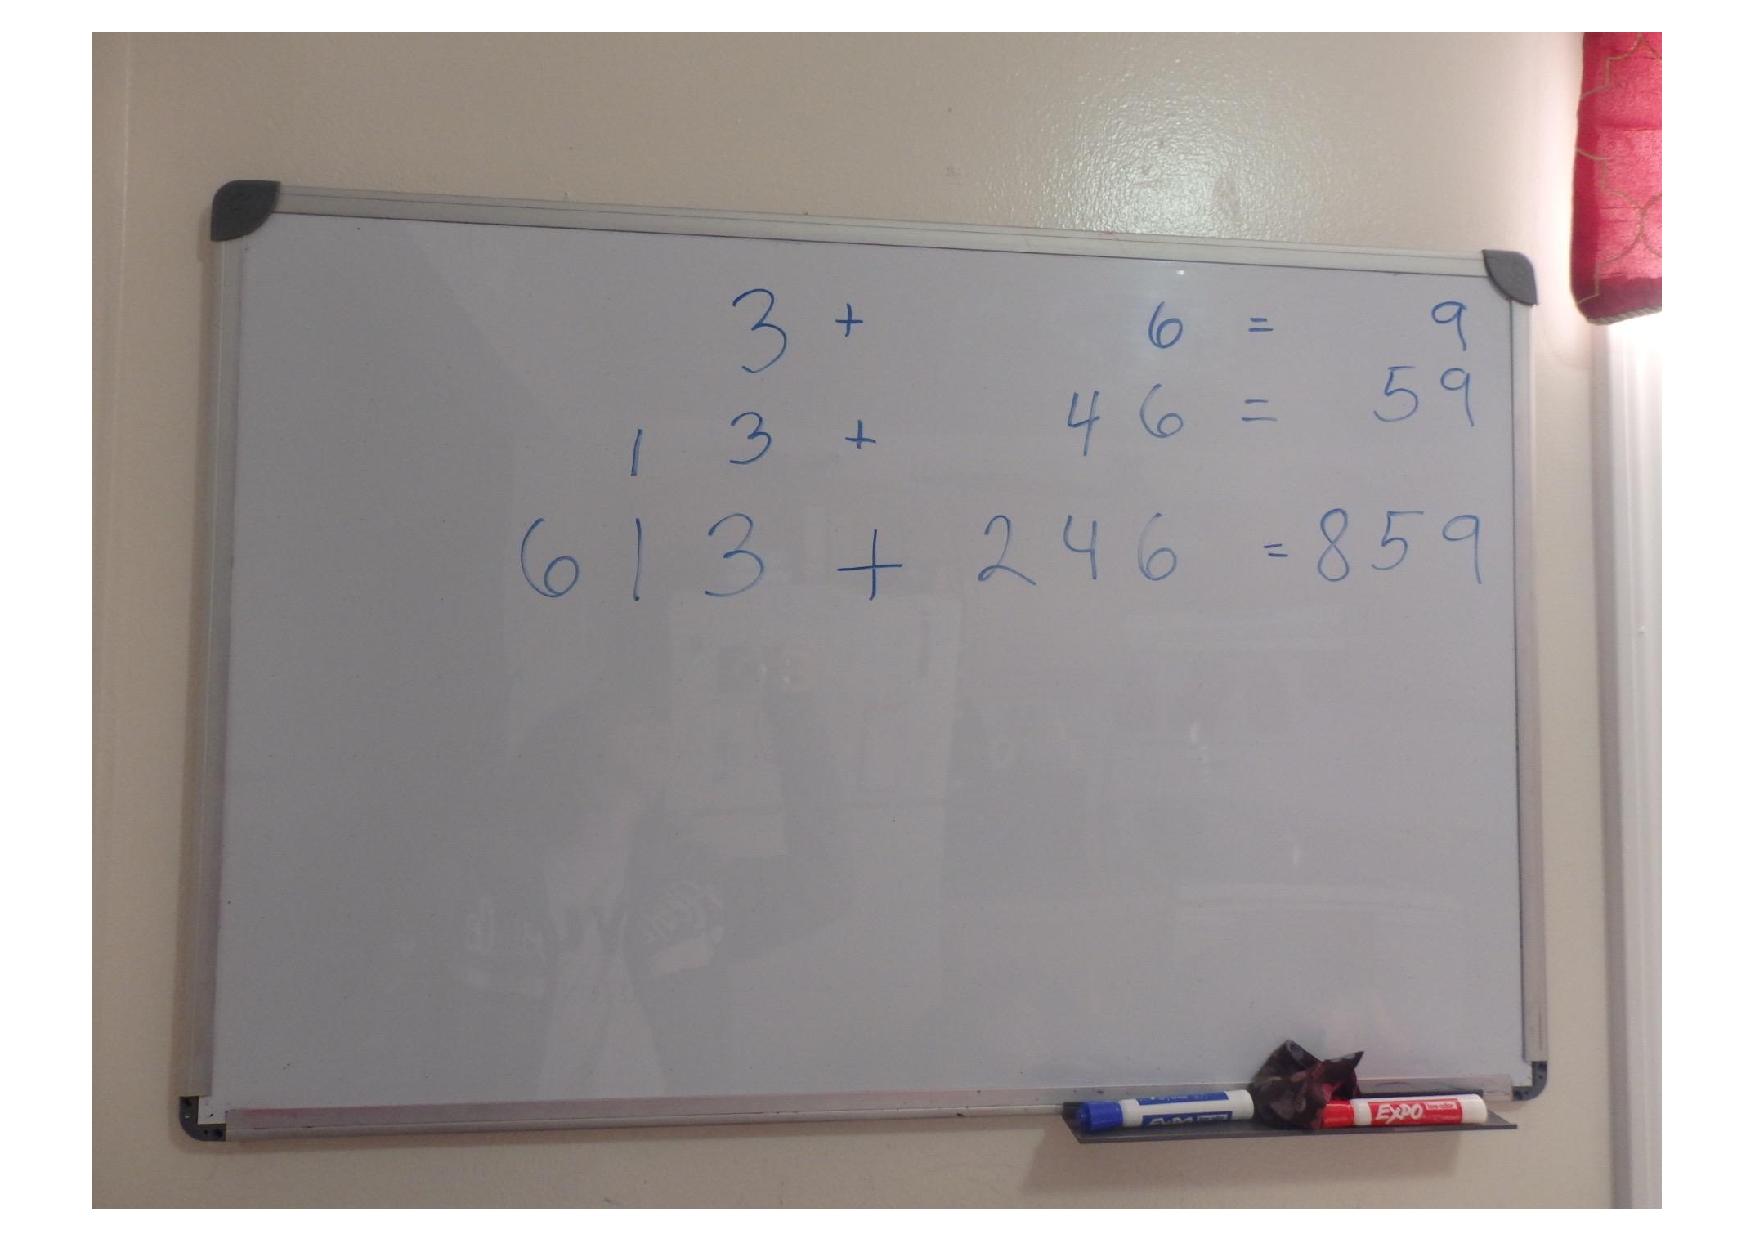 3 + 6 = 9
13 + 46 = 59
613 + 246 = 859
EXPO
EXPO